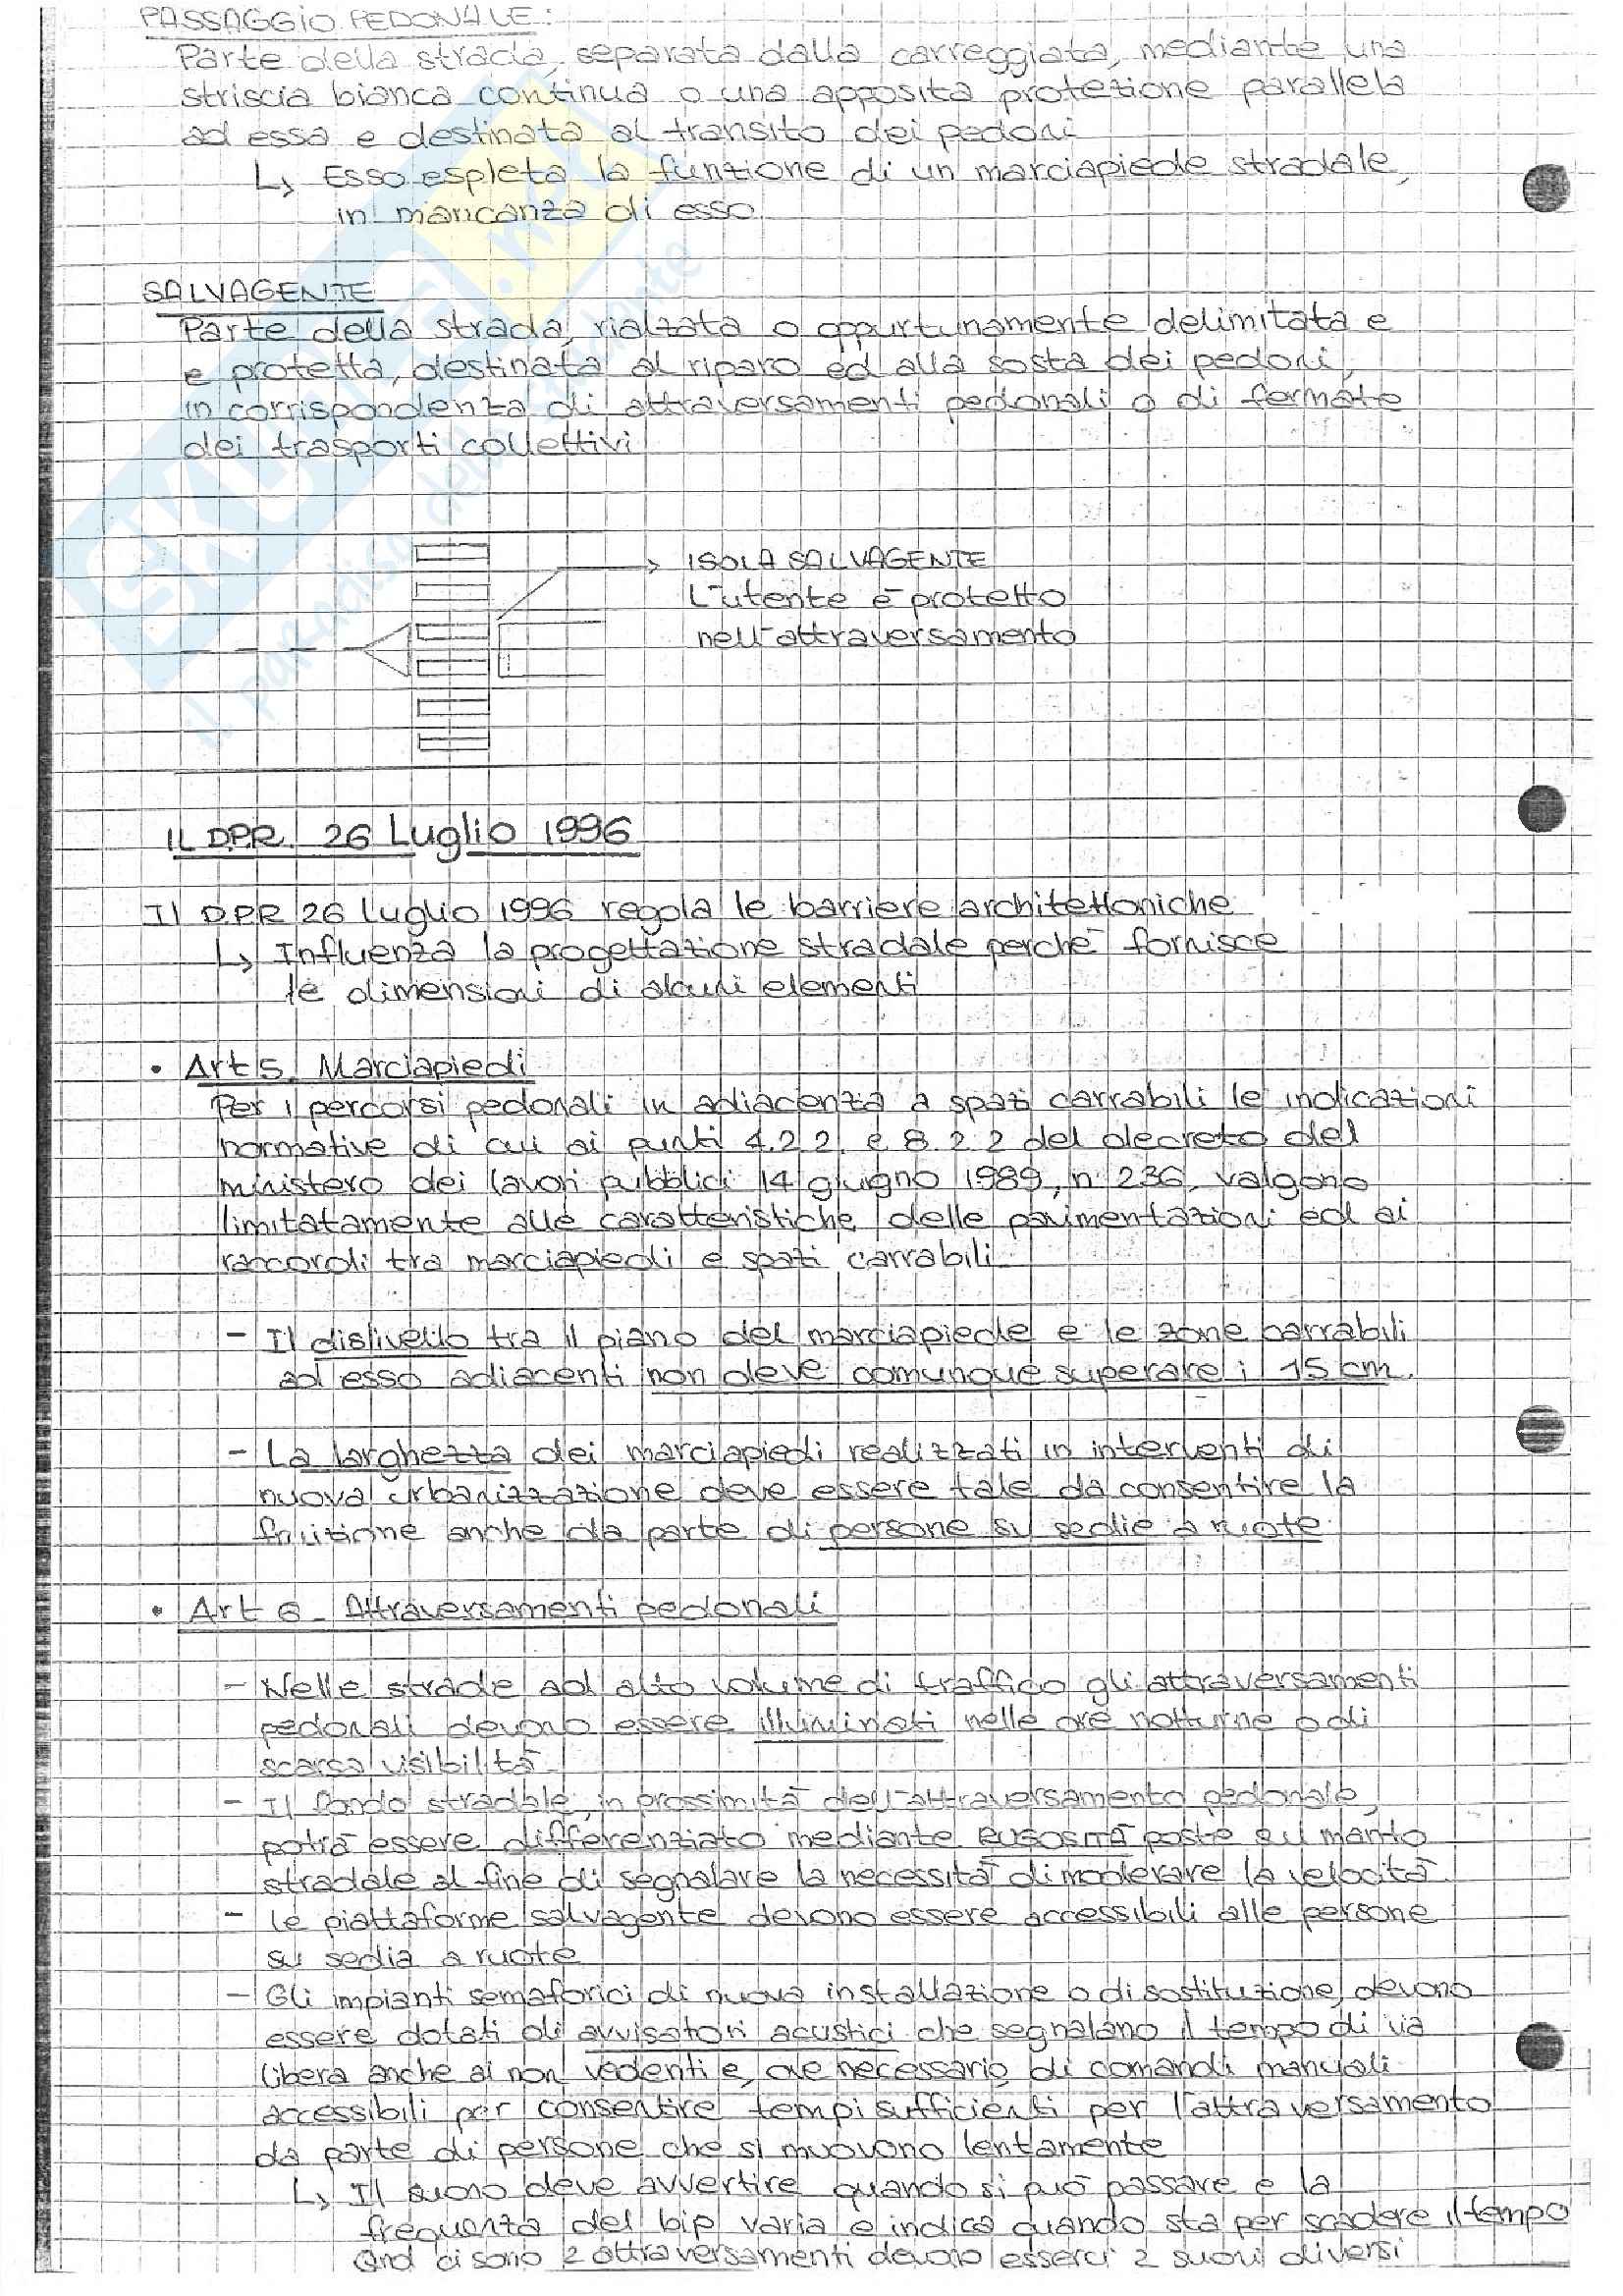 PASSAGGIO PEDONALE:
Parte della strada, separata dalla carreggiata, mediante una
striscia bianca continua o una apposita protezione parallela
ad essa e destinata al transito dei pedoni
↳ Esso espleta la funzione di un marciapiede stradale,
in mancanza di esso.
SALVAGENTE
Parte della strada, rialzata o oppurtunamente delimitata e
e protetta, destinata al riparo ed alla sosta dei pedoni,
in corrispondenza di attraversamenti pedonali o di fermate
dei trasporti collettivi
ISOLA SALVAGENTE
L'utente è protetto
nell'attraversamento
IL D.P.R. 26 Luglio 1996
Il D.P.R 26 luglio 1996 regola le barriere architettoniche
↳ Influenza la progettazione stradale perchè fornisce
le dimensioni di alcuni elementi
• Art 5. Marciapiedi
Per i percorsi pedonali in adiacenza a spazi carrabili le indicazioni
normative di cui ai punti 4.2.2. e 8.2.2 del decreto del
ministero dei lavori pubblici 14 giugno 1989, n. 236, valgono
limitatamente alle caratteristiche delle pavimentazioni ed ai
raccordi tra marciapiedi e spazi carrabili.
- Il dislivello tra il piano del marciapiede e le zone carrabili
ad esso adiacenti non deve comunque superare i 15 cm.
- La larghezza dei marciapiedi realizzati in interventi di
nuova urbanizzazione deve essere tale da consentire la
fruizione anche da parte di persone su sedie a ruote.
• Art 6. Attraversamenti pedonali
- Nelle strade ad alto volume di traffico gli attraversamenti
pedonali devono essere illuminati nelle ore notturne o di
scarsa visibilità.
- Il fondo stradale, in prossimità dell'attraversamento pedonale,
potrà essere differenziato mediante RUGOSITÀ poste su manto
stradale al fine di segnalare la necessità di moderare la velocità.
- le piattaforme salvagente devono essere accessibili alle persone
su sedia a ruote
- Gli impianti semaforici di nuova installazione o di sostituzione, devono
essere dotati di avvisatori acustici che segnalano il tempo di via
libera anche ai non vedenti e, ove necessario, di comandi manuali
accessibili per consentire tempi sufficienti per l'attraversamento
da parte di persone che si muovono lentamente
↳ Il suono deve avvertire quando si può passare e la
frequenza del bip varia e indica quando sta per scadere il tempo
Qnd ci sono 2 attraversamenti devono esserci 2 suoni diversi